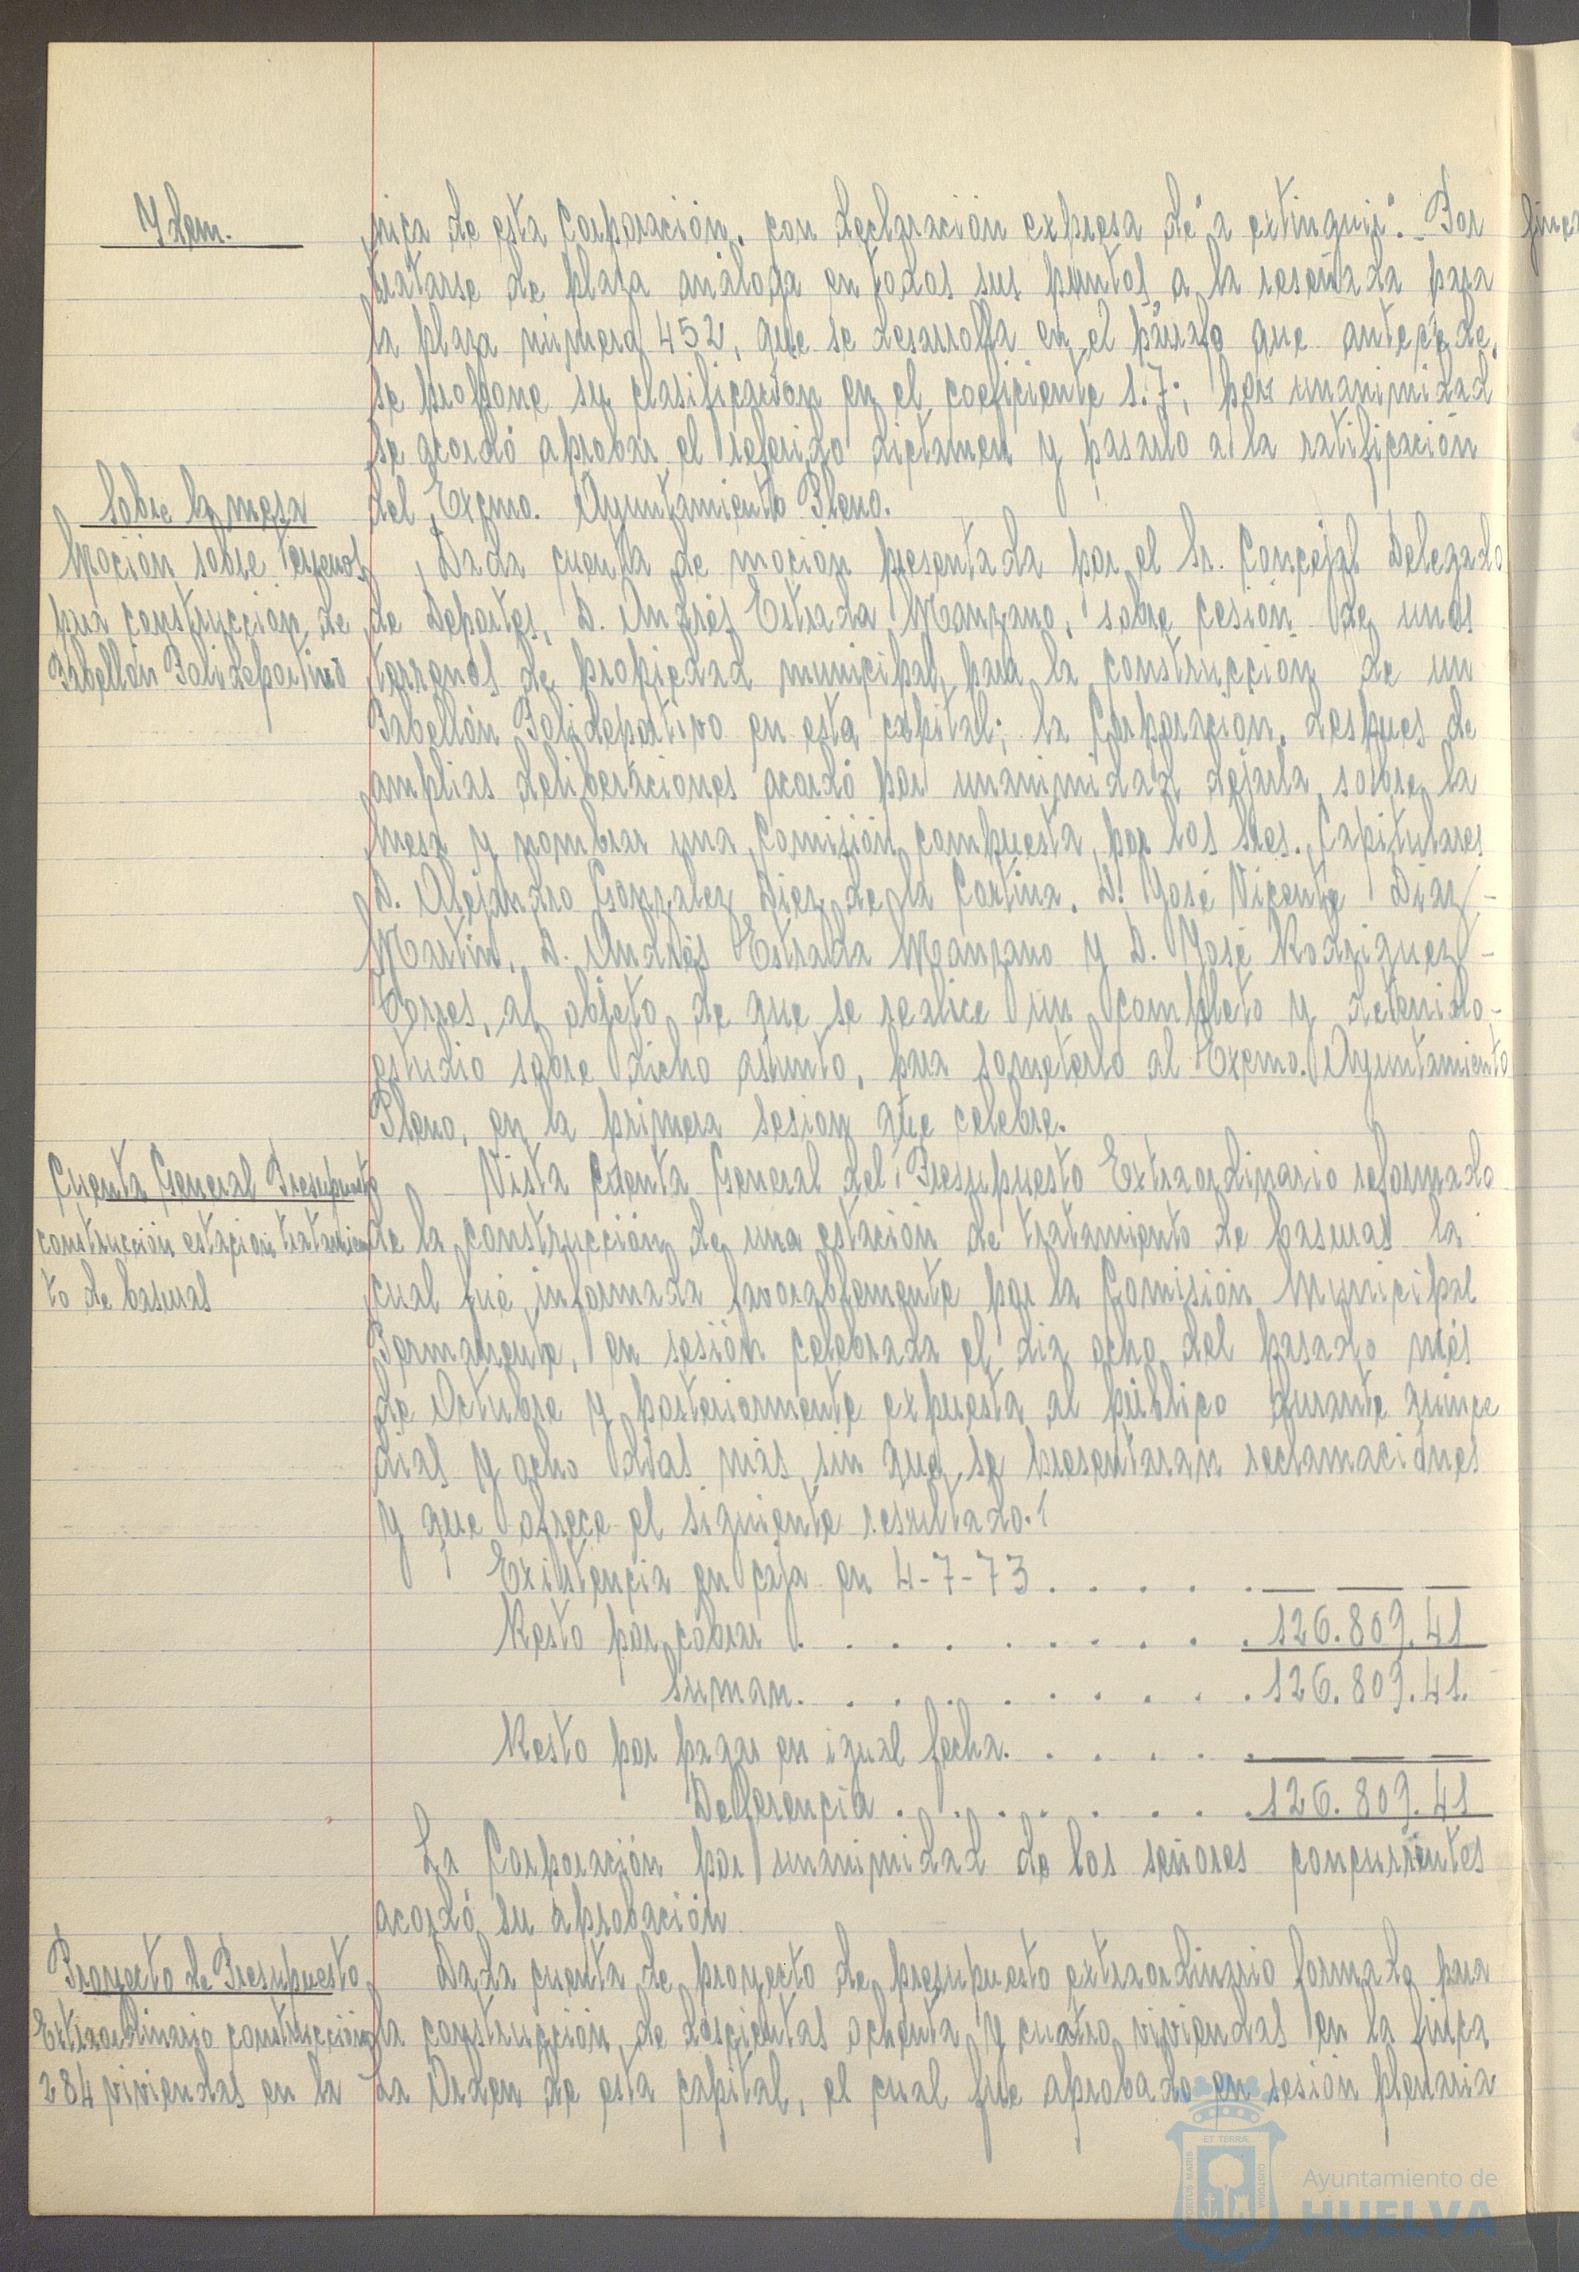 Ydem.
nica de esta Corporación, con declaración expresa de "a extinguir". Por
tratarse de plaza análoga en todos sus puntos, a la reseñada para
la plaza número 452, que se desarrolla en el párrafo que antecede,
se propone su clasificación en el coeficiente 1.7; por unanimidad
se acordó aprobar el referido dictamen y pasarlo a la ratificación
del Excmo. Ayuntamiento Pleno.
Sobre la mesa
Moción sobre terrenos
para construcción de
Pabellón Polideportivo
Dada cuenta de moción presentada por el Sr. Concejal Delegado
de Deportes, D. Andrés Estrada Manzano, sobre cesión de unos
terrenos de propiedad municipal, para la construcción de un
Pabellón Polideportivo en esta capital; la Corporación, despues de
amplias deliberaciones acordó por unanimidad dejarla sobre la
mesa y nombrar una Comisión compuesta por los Sres. Capitulares
D. Alejandro Gonzalez Diez de la Cortina, D. José Vicente Diaz-
Martín, D. Andrés Estrada Manzano y D. José Rodriguez-
Torres, al objeto de que se realice un completo y detenido-
estudio sobre dicho asunto, para someterlo al Excmo. Ayuntamiento
Pleno, en la primera sesion que celebre.
Cuenta General Presupuesto
construcción estación tratamien
to de basuras
Vista Cuenta General del Presupuesto Extraordinario reformado
de la construcción de una estación de tratamiento de basuras la
cual fué informada favorablemente por la Comisión Municipal
Permanente, en sesión celebrada el dia ocho del pasado més
de Octubre y posteriormente expuesta al público durante quince
dias y ocho dias más, sin que se presentaran reclamaciones
y que ofrece el siguiente resultado.
Existencia en caja en 4-7-73 . . . . . — — —
Resto por cobrar . . . . . . . . . . 126.809.41
Suman. . . . . . . . . . . 126.809.41.
Resto por pagar en igual fecha. . . . . . — — —
Deferencia . . . . . . . . 126.809.41
La Corporación por unanimidad de los señores concurrentes
acordó su aprobación
Proyecto de Presupuesto
Extraordinario construcción
284 viviendas en la
Dada cuenta de proyecto de presupuesto extraordinario formado para
la construcción de doscientas ochenta y cuatro viviendas en la finca
La Orden de esta capital, el cual fue aprobado en sesión plenaria
PORTUS MARIS ET TERRÆ CUSTODIA
Ayuntamiento de
HUELVA